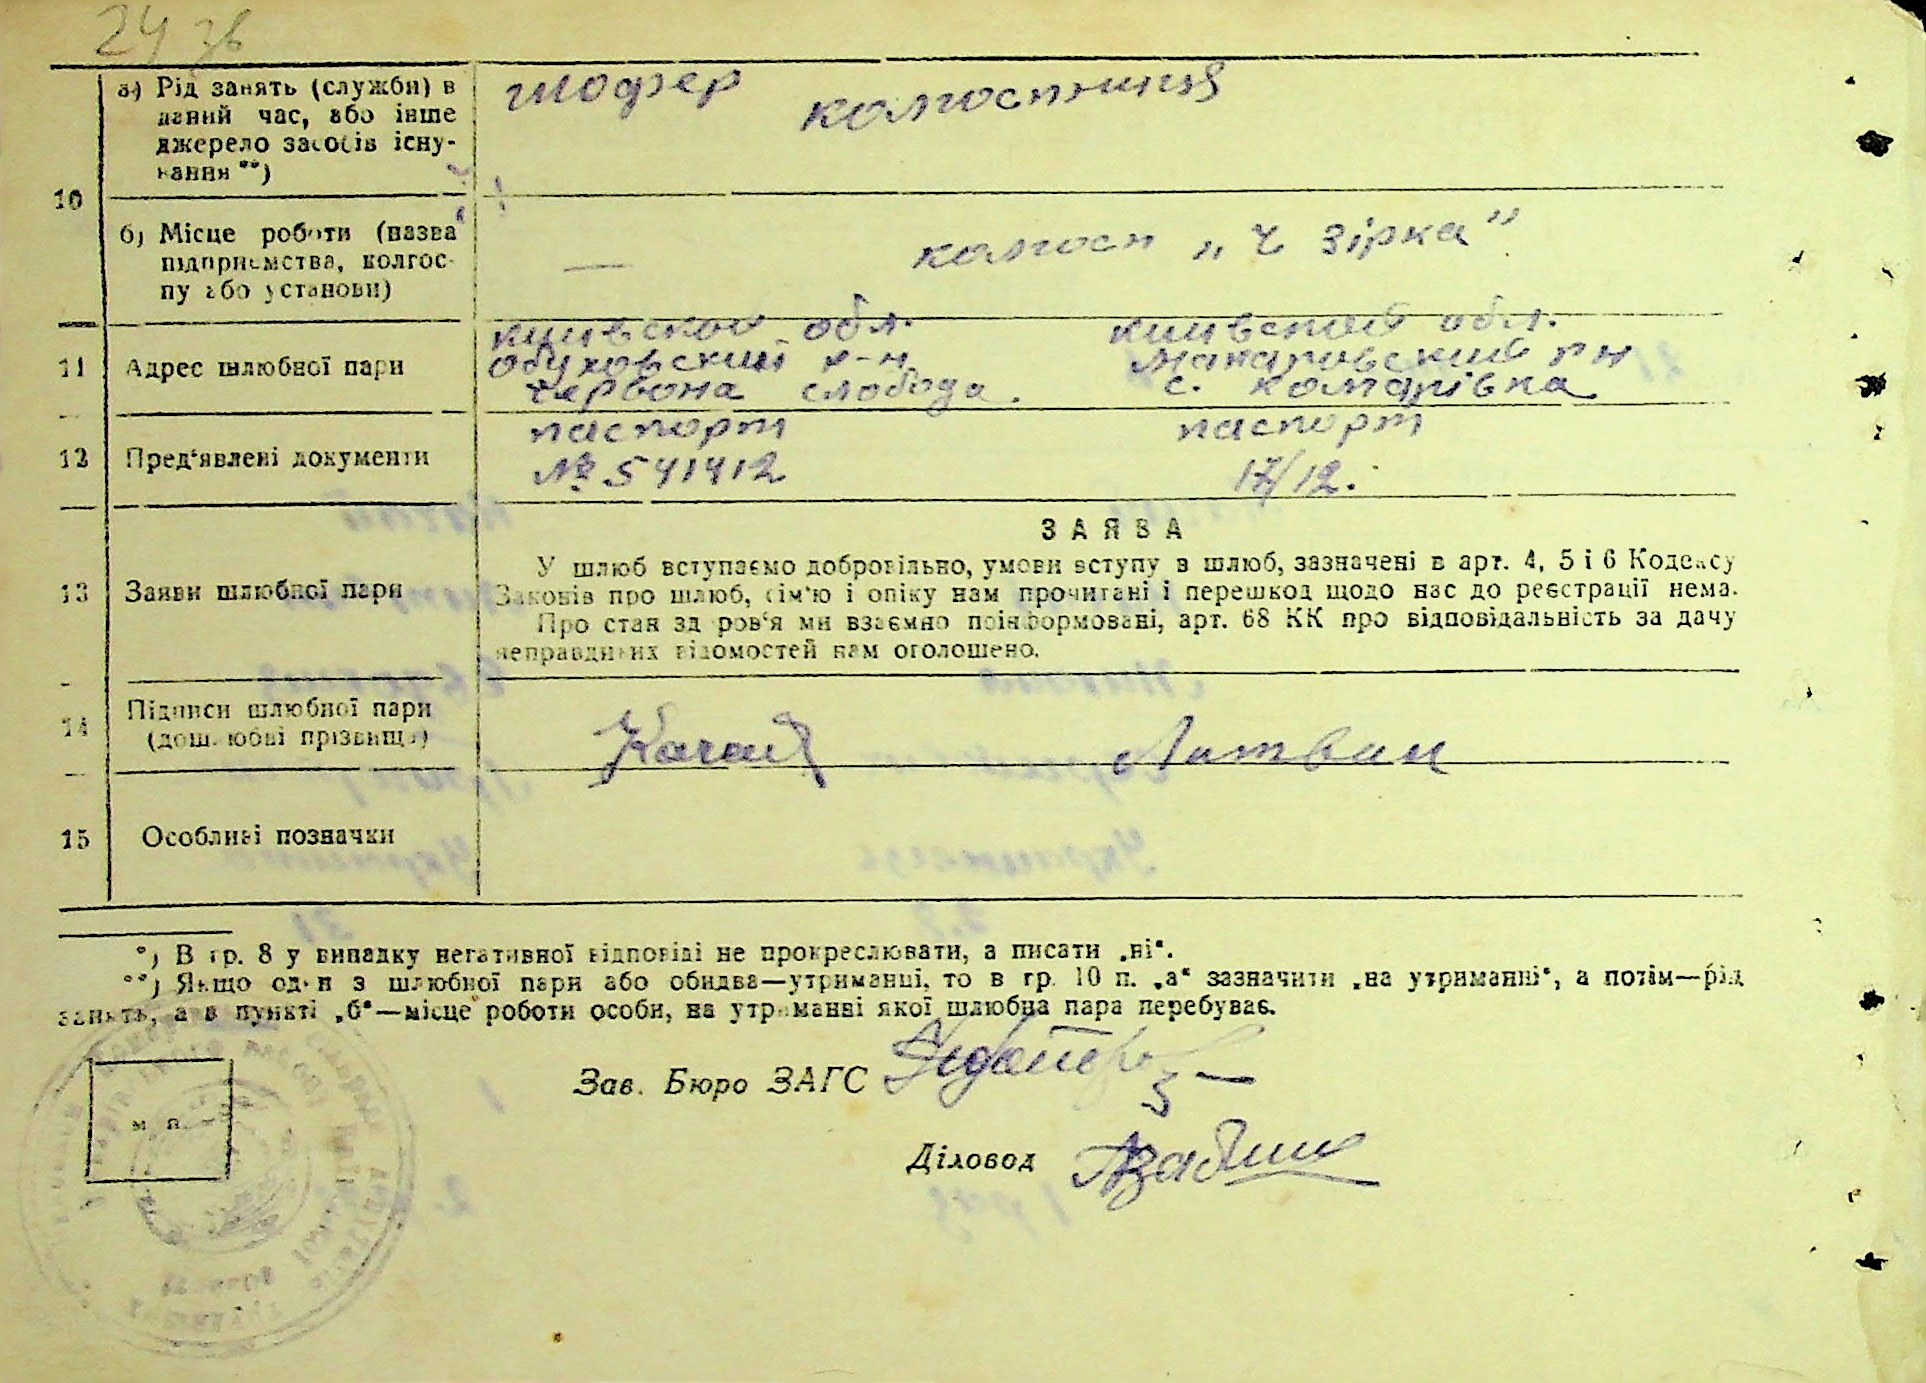 24 зв
а) Рід занять (служби) в
даний час, або інше
джерело засобів існу-
вання **)
шофер колгоспниця
10
б) Місце роботи (назва
підприємства, колгос-
пу або установи)
— колгосп „Ч Зірка”
11 Адрес шлюбної пари
киивской обл. киивской обл.
обуховский р-н Макаровский рн
червона слобода. с. комарівка
12 Пред'явлені документи
паспорт паспорт
№ 541412 17/12.
ЗАЯВА
13 Заяви шлюбної пари
У шлюб вступаємо добровільно, умови вступу в шлюб, зазначені в арт. 4, 5 і 6 Кодексу
Законів про шлюб, сім'ю і опіку нам прочитані і перешкод щодо нас до реєстрації нема.
Про стан здоров'я ми взаємно поінформовані, арт. 68 КК про відповідальність за дачу
неправдивих відомостей нам оголошено.
14 Підписи шлюбної пари
(дошлюбні прізвища)
Качай Литвин
15 Особливі позначки
*) В гр. 8 у випадку негативної відповіді не прокреслювати, а писати „ні“.
**) Якщо один з шлюбної пари або обидва—утриманці, то в гр. 10 п. „а“ зазначити „на утриманні“, а потім—рід
занять, а в пункті „б“—місце роботи особи, на утриманні якої шлюбна пара перебуває.
Зав. Бюро ЗАГС
м. п.
Діловод